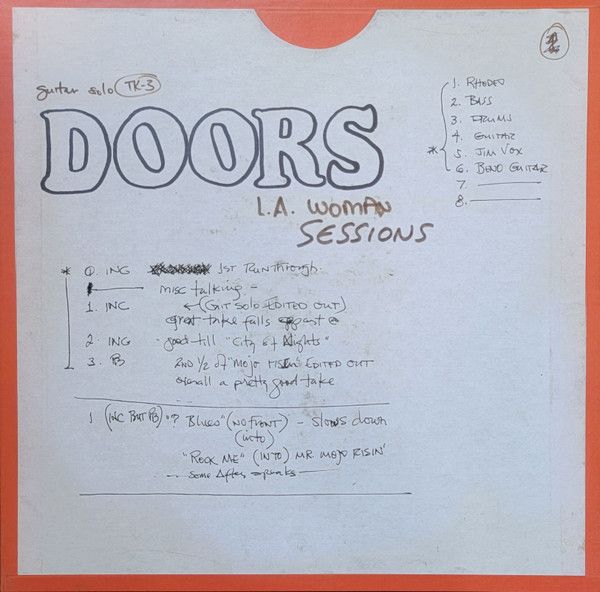 guitar solo TK-3
DOORS
L.A. WOMAN
SESSIONS
1. RHODES
2. BASS
3. DRUMS
4. GUITAR
* 5. JIM VOX
6. BEND GUITAR
7.
8.
* 0 ING 1ST RUNTHROUGH
misc talking -
1. INC ← (GIT SOLO EDITED OUT)
great take falls apart @
2. ING good till "City of Nights"
3. PB 2ND 1/2 of "MOJO RISIN" EDITED OUT
overall a pretty good take
1 (INC BUT PB) "? BLUES" (NO FRONT) - SLOWS DOWN
(INTO)
"ROCK ME" (INTO) MR. MOJO RISIN'
-- some After speaks